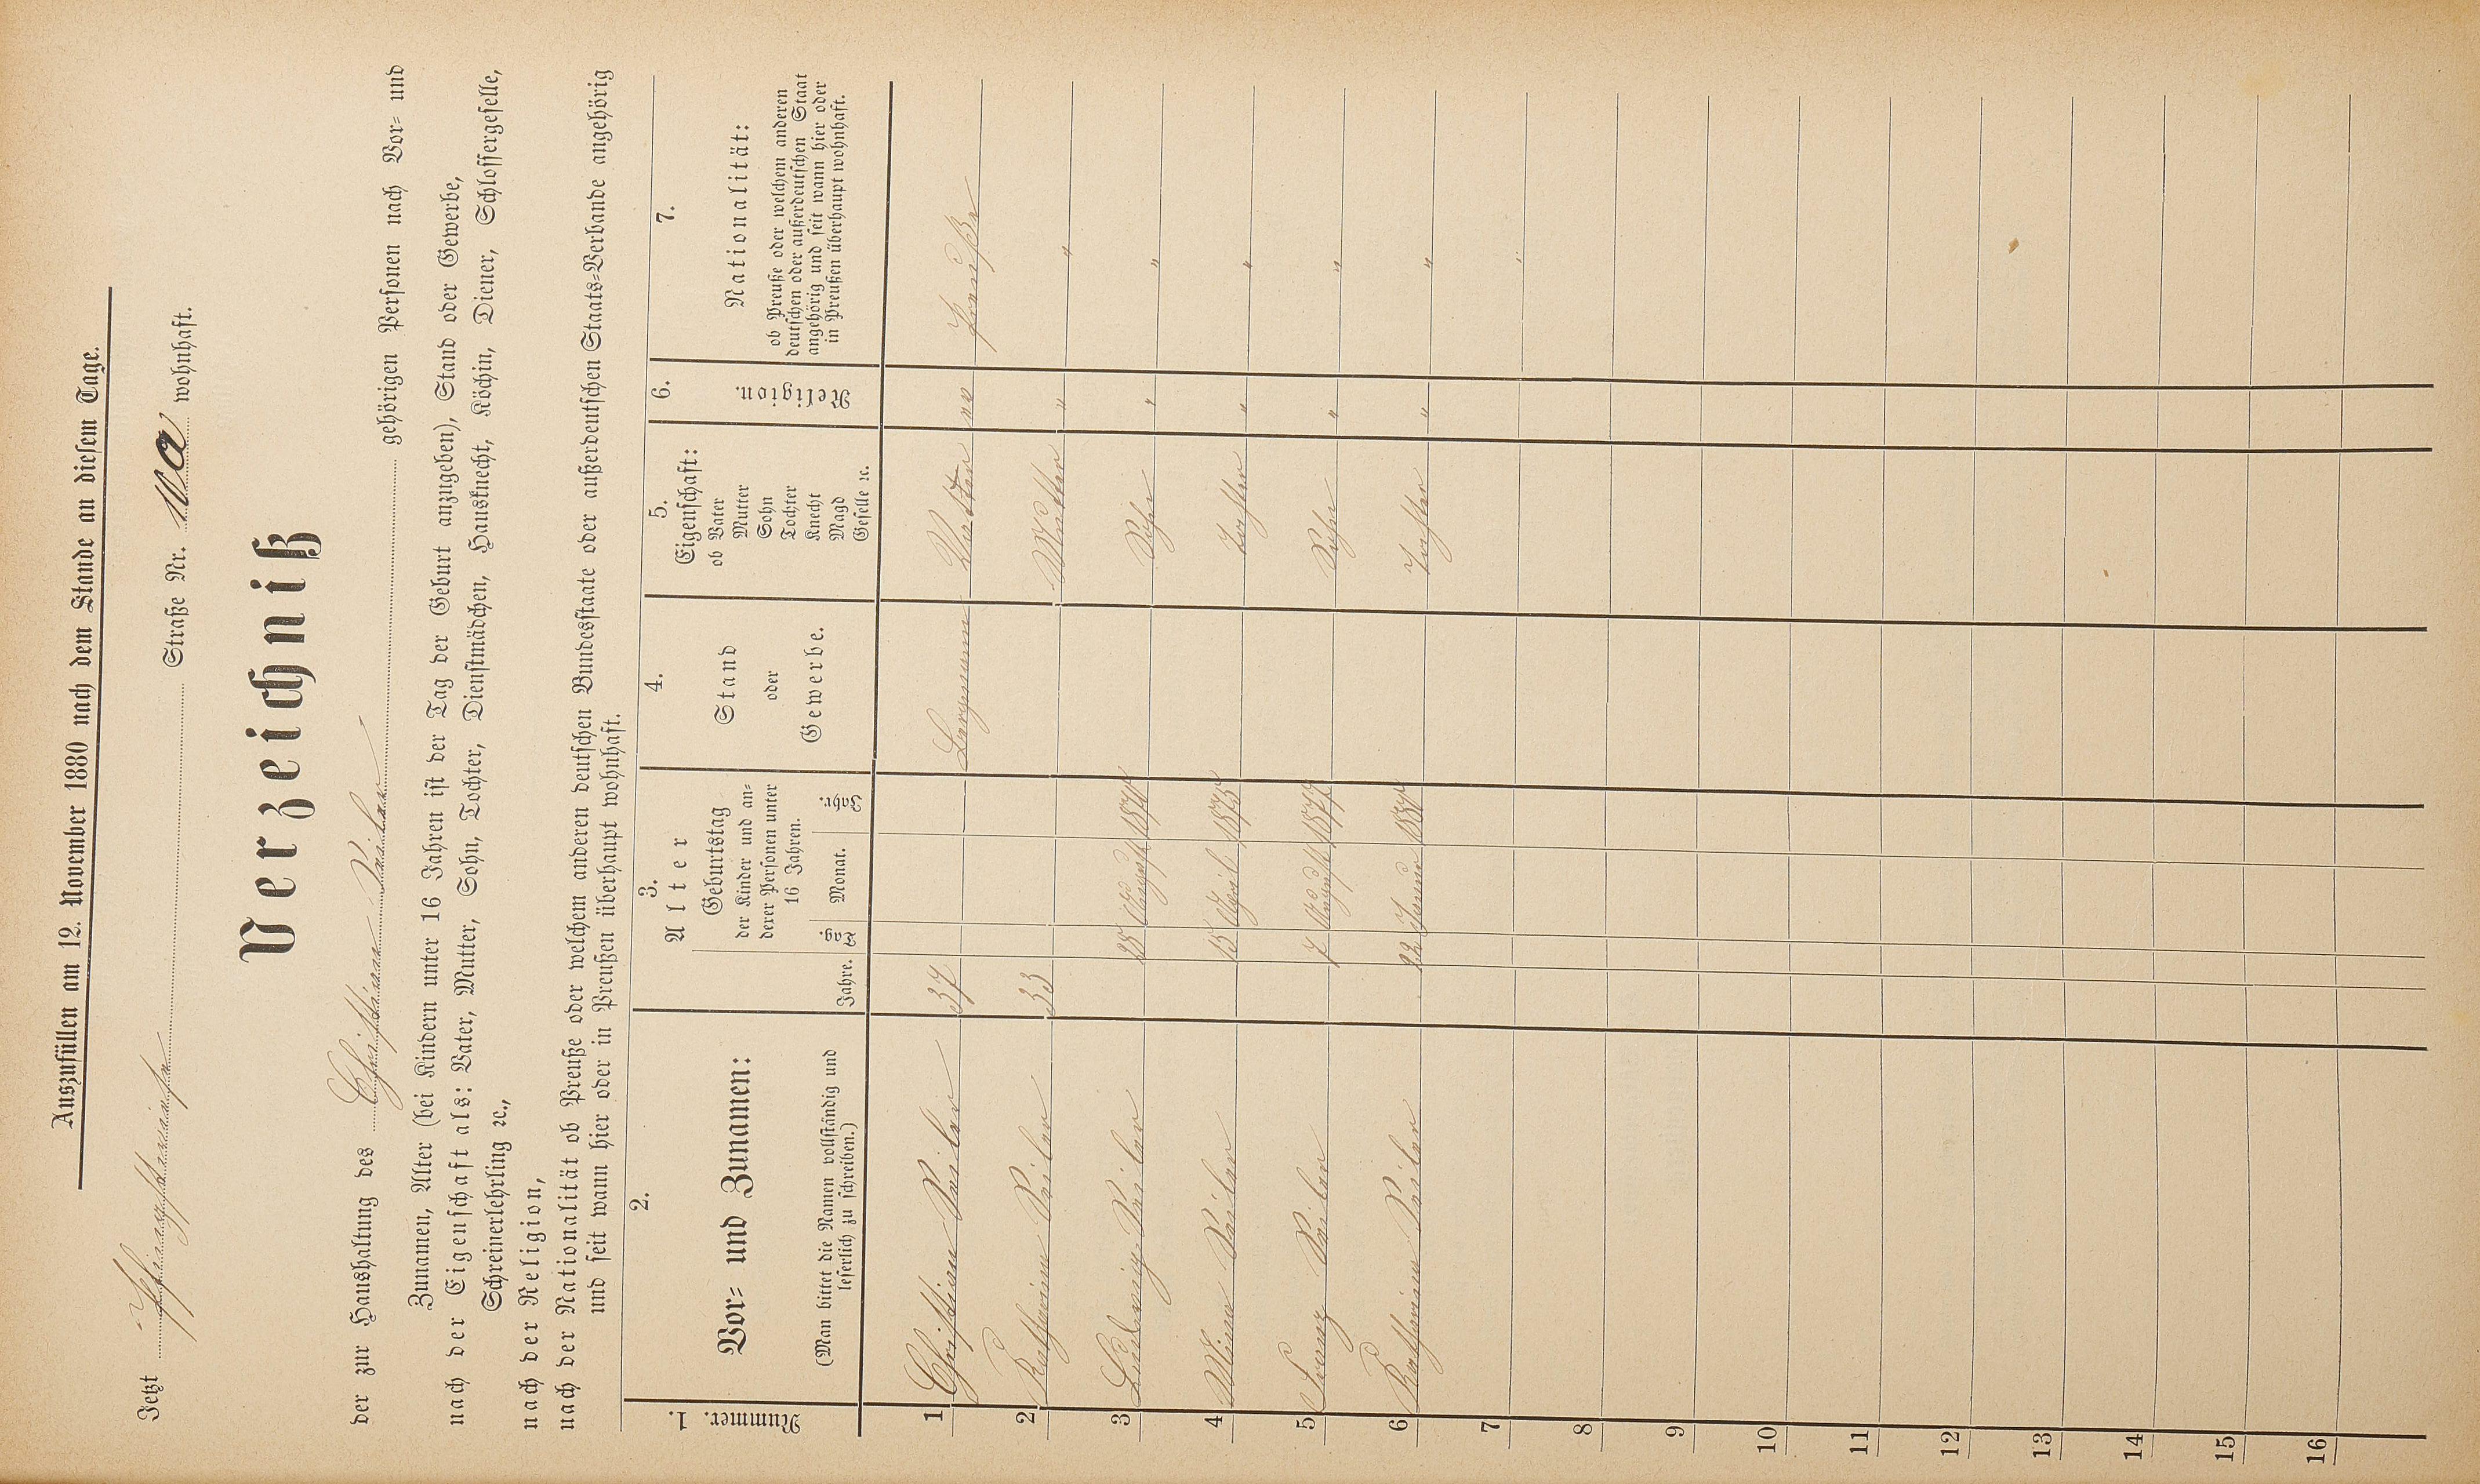 Auszufüllen am 12. November 1880 nach dem Stande an diesem Tage.
Jetzt Straße Nr. 10a wohnhaft.
Verzeichniß
der zur Haushaltung des Christian Seiler gehörigen Personen nach Vor- und
Zunamen, Alter (bei Kindern unter 16 Jahren ist der Tag der Geburt anzugeben), Stand oder Gewerbe,
nach der Eigenschaft als: Vater, Mutter, Sohn, Tochter, Dienstmädchen, Hausknecht, Köchin, Diener, Schlossergeselle,
Schreinerlehrling ꝛc.,
nach der Religion,
nach der Nationalität ob Preuße oder welchem anderen deutschen Bundesstaate oder außerdeutschen Staats-Verbande angehörig
und seit wann hier oder in Preußen überhaupt wohnhaft.
1. 2. 3. 4. 5. 6. 7.
Nummer.
Vor- und Zunamen:
(Man bittet die Namen vollständig und
leserlich zu schreiben.)
Alter
Jahre.
Geburtstag
der Kinder und an-
derer Personen unter
16 Jahren.
Tag Monat. Jahr.
Stand
oder
Gewerbe.
Eigenschaft:
ob Vater
Mutter
Sohn
Tochter
Knecht
Magd
Geselle ꝛc.
Religion.
Nationalität:
ob Preuße oder welchem anderen
deutschen oder außerdeutschen Staat
angehörig und seit wann hier oder
in Preußen überhaupt wohnhaft.
1 Christian Seiler 37 Bergmann Vater ev Preuße
2 Katharina Seiler 33 Mutter " "
3 Ludwig Seiler 28 August 1874 Sohn " "
4 Mina Seiler 15 April 1875 Tochter " "
5 Franz Seiler 7 August 1877 Sohn " "
6 Katharina Seiler 22 Tochter " "
7
8
9
10
11
12
13
14
15
16